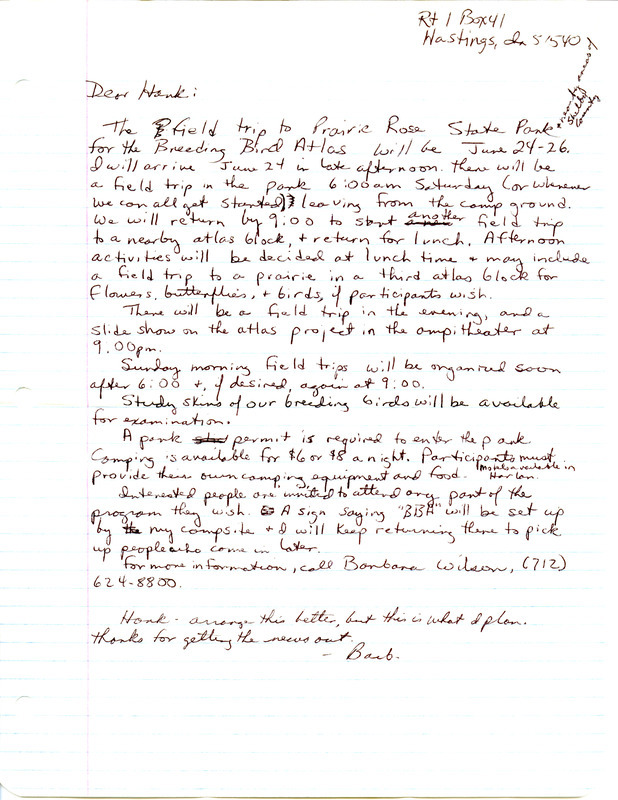 Rt 1 Box 41
Hastings, Ia 51540
Dear Hank:
The field trip to Prairie Rose State Park
+ nearby areas of
Shelby
County
for the Breeding Bird Atlas will be June 24-26.
I will arrive June 24 in late afternoon. There will be
a field trip in the park 6:00am Saturday (or whenever
we can all get started) leaving from the camp ground.
We will return by 9:00 to start another field trip
to a nearby atlas block, + return for lunch. Afternoon
activities will be decided at lunch time + may include
a field trip to a prairie in a third atlas block for
flowers, butterflies, + birds, if participants wish.
There will be a field trip in the evening, and a
slide show on the atlas project in the ampitheater at
9:00pm.
Sunday morning field trips will be organized soon
after 6:00 +, if desired, again at 9:00.
Study skins of our breeding birds will be available
for examination.
A park permit is required to enter the park
Camping is available for $6 or $8 a night. Participants must
provide their own camping equipment and food. (Motels available in
Harlan.
Interested people are invited to attend any part of the
program they wish. A sign saying "BBA" will be set up
by my campsite + I will keep returning there to pick
up people who come in later.
For more information, call Barbara Wilson, (712)
624-8800.
Hank - arrange this better, but this is what I plan.
Thanks for getting the news out.
- Barb.